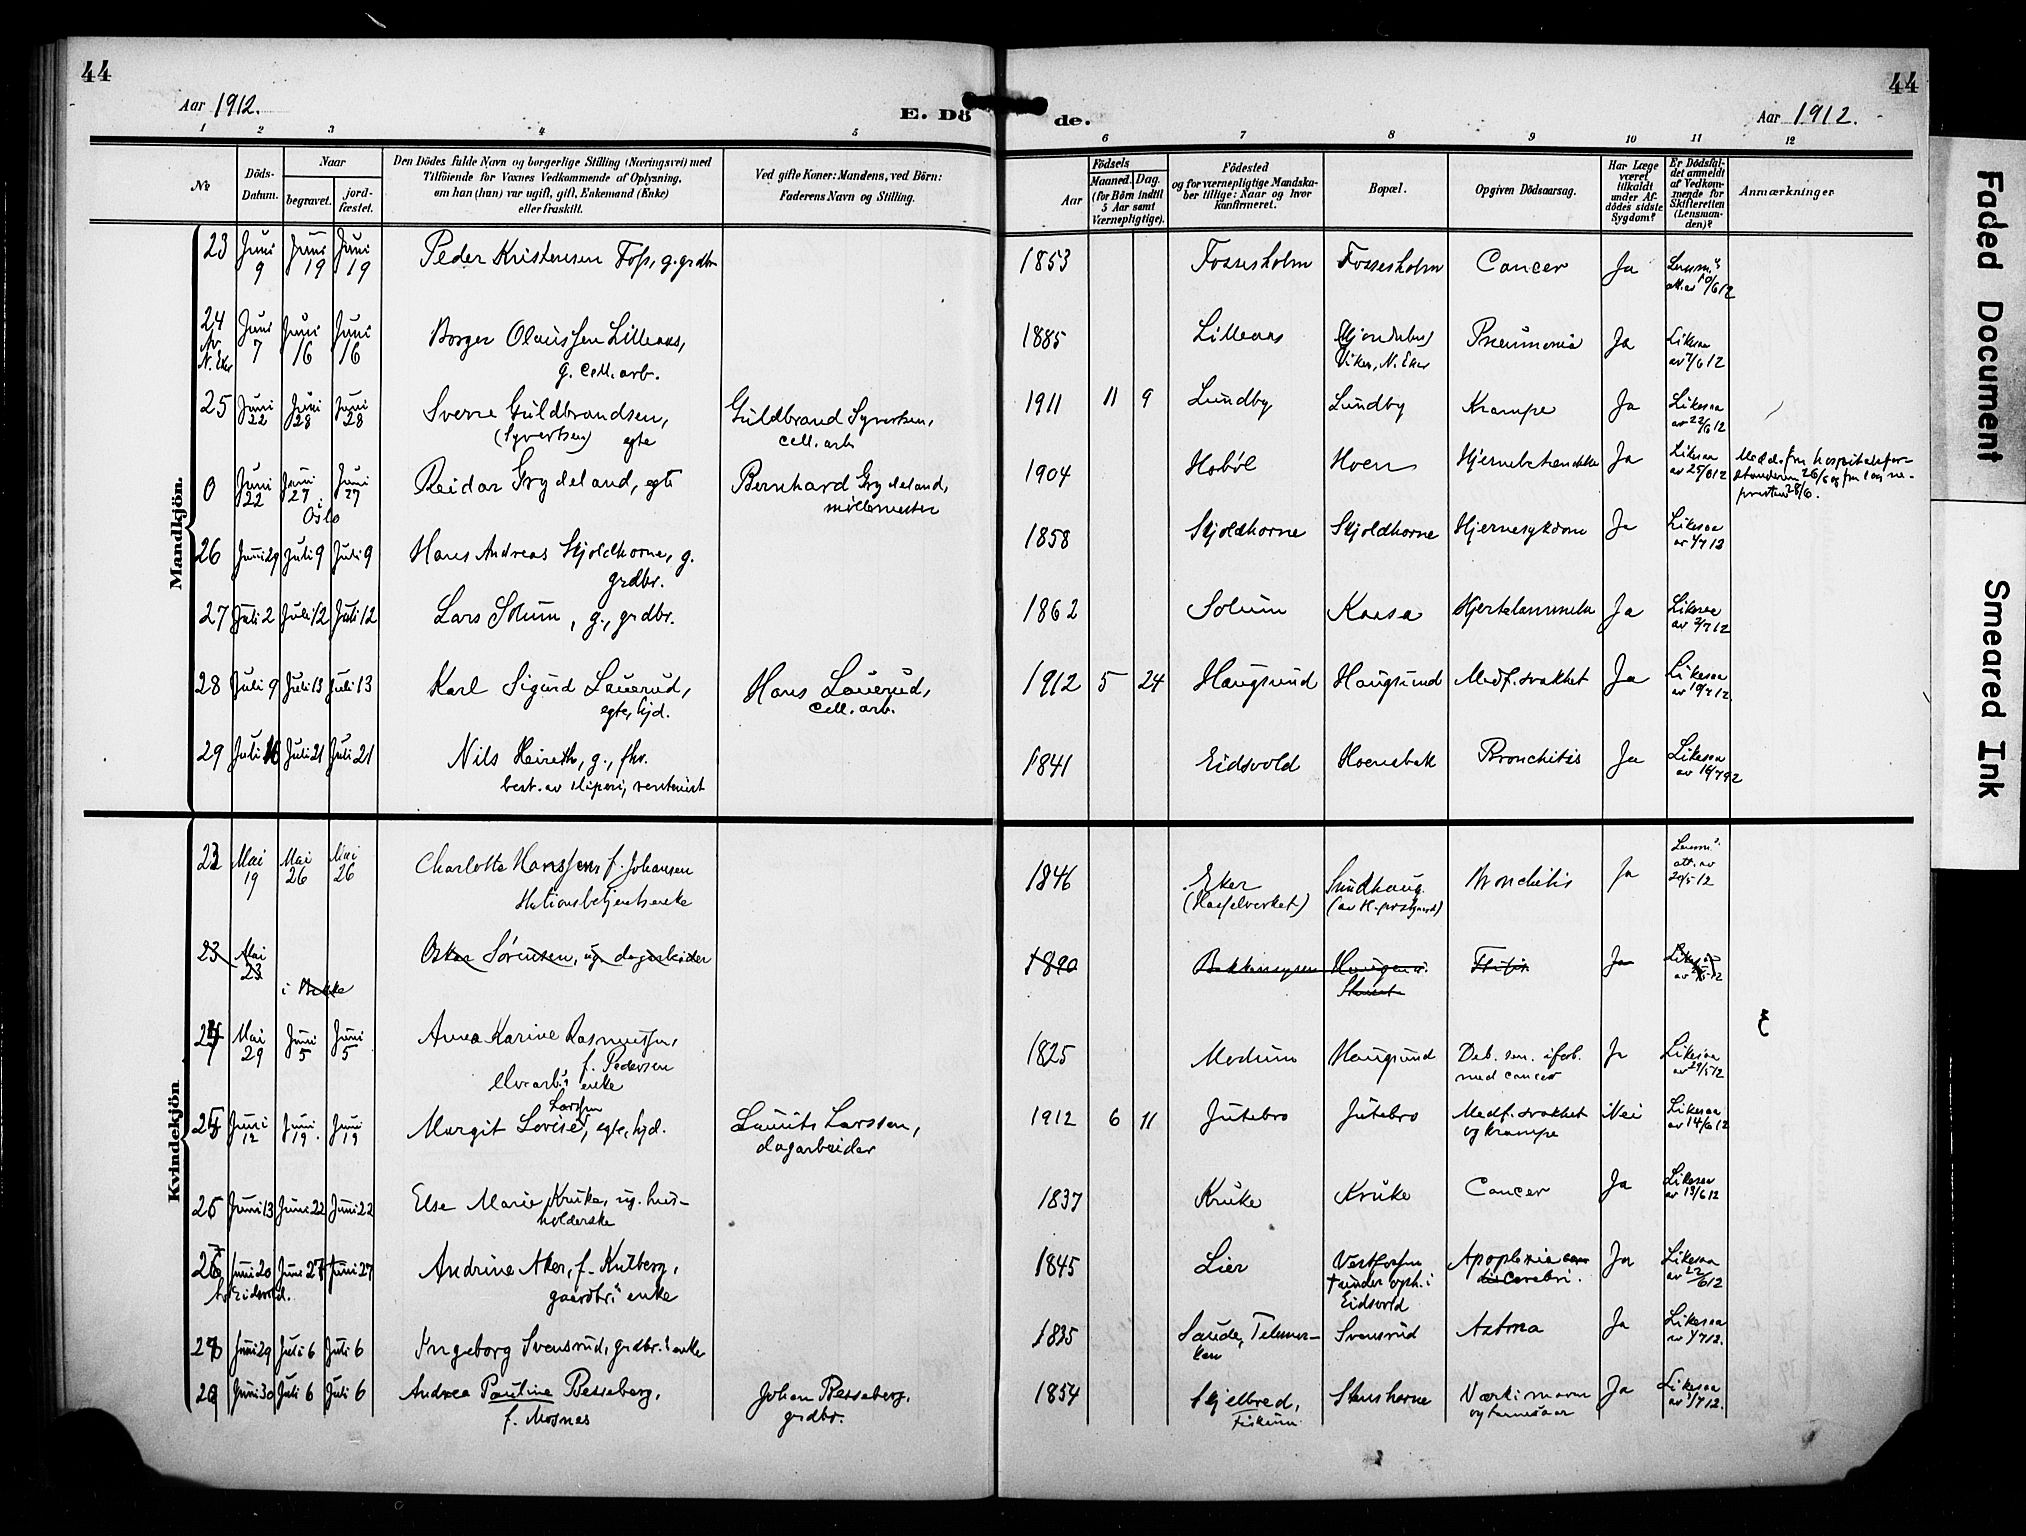 44
44
Aar 1912.
E. Dö de.
Aar 1912.
1 2 3 4 5 6 7 8 9 10 11 12
No
Döds-Datum.
Naar
begravet.
jord-fæstet.
Den Dödes fulde Navn og borgerlige Stilling (Næringsvei) med
Tilföiende for Voxnes Vedkommende af Oplysning,
om han (hun) var ugift, gift, Enkemand (Enke)
eller fraskilt.
Ved gifte Koner: Mandens, ved Börn:
Faderens Navn og Stilling.
Födsels
Aar
Maaned. Dag.
(for Börn indtil
5 Aar samt
Værnepligtige).
Födested
og for værnepligtige Mandska-
ber tillige: Naar og hvor
konfirmeret.
Bopæl.
Opgiven Dödsaarsag.
Har Læge
været
tilkaldt
under Af-
dödes sidste
Sygdom?
Er Dödsfal-
det anmeldt
af Vedkom-
mende for
Skifteretten
(Lensman-
den)?
Anmærkninger
Mandkjön.
23 Juni 9 Juni 19 Juni 19 Peder Kristensen Foss, g. grdbr 1853 Fossesholm Fossesholm Cancer Ja Lensm.s att. av 10/6 12
24 Av N. Eker Juni 7 Juni 16 Juni 16 Borger Olaussen Lilleaas,
g. cell. arb. 1885 Lilleaas Mjøndalen, Viker, N. Eker Pneumonia Ja Likesaa av 7/6 12
25 Juni 22 Juni 28 Juni 28 Sverre Guldbrandsen,
(Syvertsen) egte Guldbrand Syvertsen,
cell. arb 1911 11 9 Lundby Lundby Krampe Ja Likesaa av 22/6 12
0 Juni 22 Juni 27 i Oslo Juni 27 Reidar Grydeland, egte Bernhard Grydeland,
møllemester 1904 Hobøl Hoen Hjernebetændelse Ja Likesaa av 25/6 12 Medd. fra hospitalsfor-
standeren 26/6 og fra sogne-
presten 28/6.
26 Juni 29 Juli 9 Juli 9 Hans Andreas Skjoldhorne, g.
grdbr. 1858 Skjoldhorne Skjoldhorne Hjernesykdom Ja Likesaa av 1/7 12
27 Juli 2 Juli 12 Juli 12 Lars Solum, g., grdbr. 1862 Solum Kaasa Hjertelammelse Ja Likesaa av 2/7 12
28 Juli 9 Juli 13 Juli 13 Karl Sigurd Lauerud,
egte, hjd. Hans Lauerud,
cell. arb. 1912 5 24 Haugsund Haugsund Medf. svakhet Ja Likesaa av 10/7 12
29 Juli 16 Juli 21 Juli 21 Nils Heireth, g., fhv.
best. av sliperi, rentenist 1841 Eidsvold Hoensbak Bronchitis Ja Likesaa av 16/7 12
Kvindekjön
22 Mai 19 Mai 26 Mai 26 Charlotte Hanssen, f. Johansen
Stationsbetjents enke 1846 Eker
(Hasselverket) Sundhaug
(av H. prstgaard) Bronchitis Ja Lensm.s att. av 20/5 12
23 Mai 23 i Bakke Oskar Sørensen, ug. dagarbeider 1890 Bakkensgren Haugen u. Ftisis Ja Likesaa
24 Mai 29 Juni 5 Juni 5 Anna Karine Rasmussen,
f. Pedersen
elvearb.s enke 1825 Modum Haugsund Deb. sen. i forb.
med cancer Ja Likesaa av 29/5 12
25 Juni 12 Juni 19. Juni 19 Margit Lovise Larssen, egte, hjd. Laurits Larssen,
dagarbeider 1912 6 11 Jutebro Jutebro Medf. svakhet
og krampe Nei Likesaa av 14/6 12
26 Juni 13 Juni 22 Juni 22 Else Marie Kruke, ug. hus-
holderske 1837 Kruke Kruke Cancer Ja Likesaa av 13/6 12
27 Av Eidsvold. Juni 20 Juni 27 Juni 27 Andrine Aker, f. Kulberg,
gaardbr.s enke 1845 Lier Vestfossen
† under oph. i
Eidsvold Apoplexia
cerebri. Ja Likesaa av 22/6 12
28 Juni 29 Juli 6 Juli 6 Ingeborg Svensrud, grdbr.s enke 1835 Saude, Telemar-
ken Svensrud Astma Ja Likesaa av 1/7 12.
29 Juni 30 Juli 6 Juli 6 Andrea Pauline Besseberg,
f. Mosnes Johan Besseberg,
grdbr. 1854 Skjelbred,
Fiskum Stenshorne Værk i mave
og Ja Likesaa av 1/7 12.
Faded Document
Smeared Ink